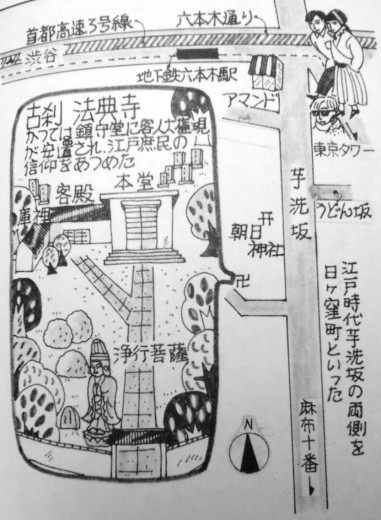 首都高速3号線
六本木通り
渋谷
地下鉄六本木駅
アマンド
東京タワー
古刹 法典寺
かつては鎮守堂に客人大権現
が安置され、江戸庶民の
信仰をあつめた
客殿
本堂
庫裡
浄行菩薩
朝日
神社
卍
芋洗坂
うどん坂
江戸時代芋洗坂の両側を
日ヶ窪町といった
麻布十番
N